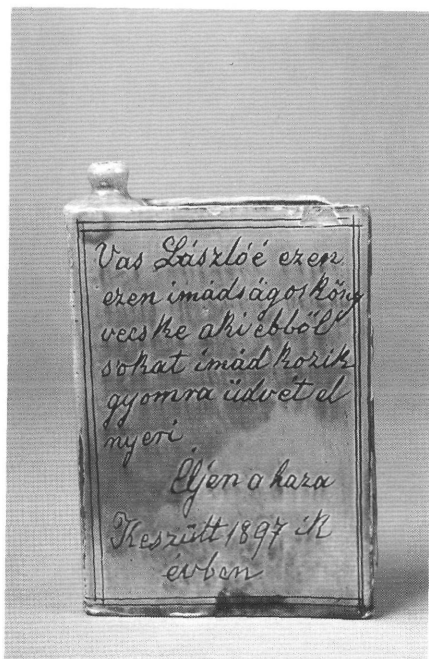 Vas Lászlóé ezen
ezen imádságos köny
vecske aki ebből
sokat imád kozik
gyomra üdvét el
nyeri
Éljen a haza
Keszűtt 1897 ik
évben